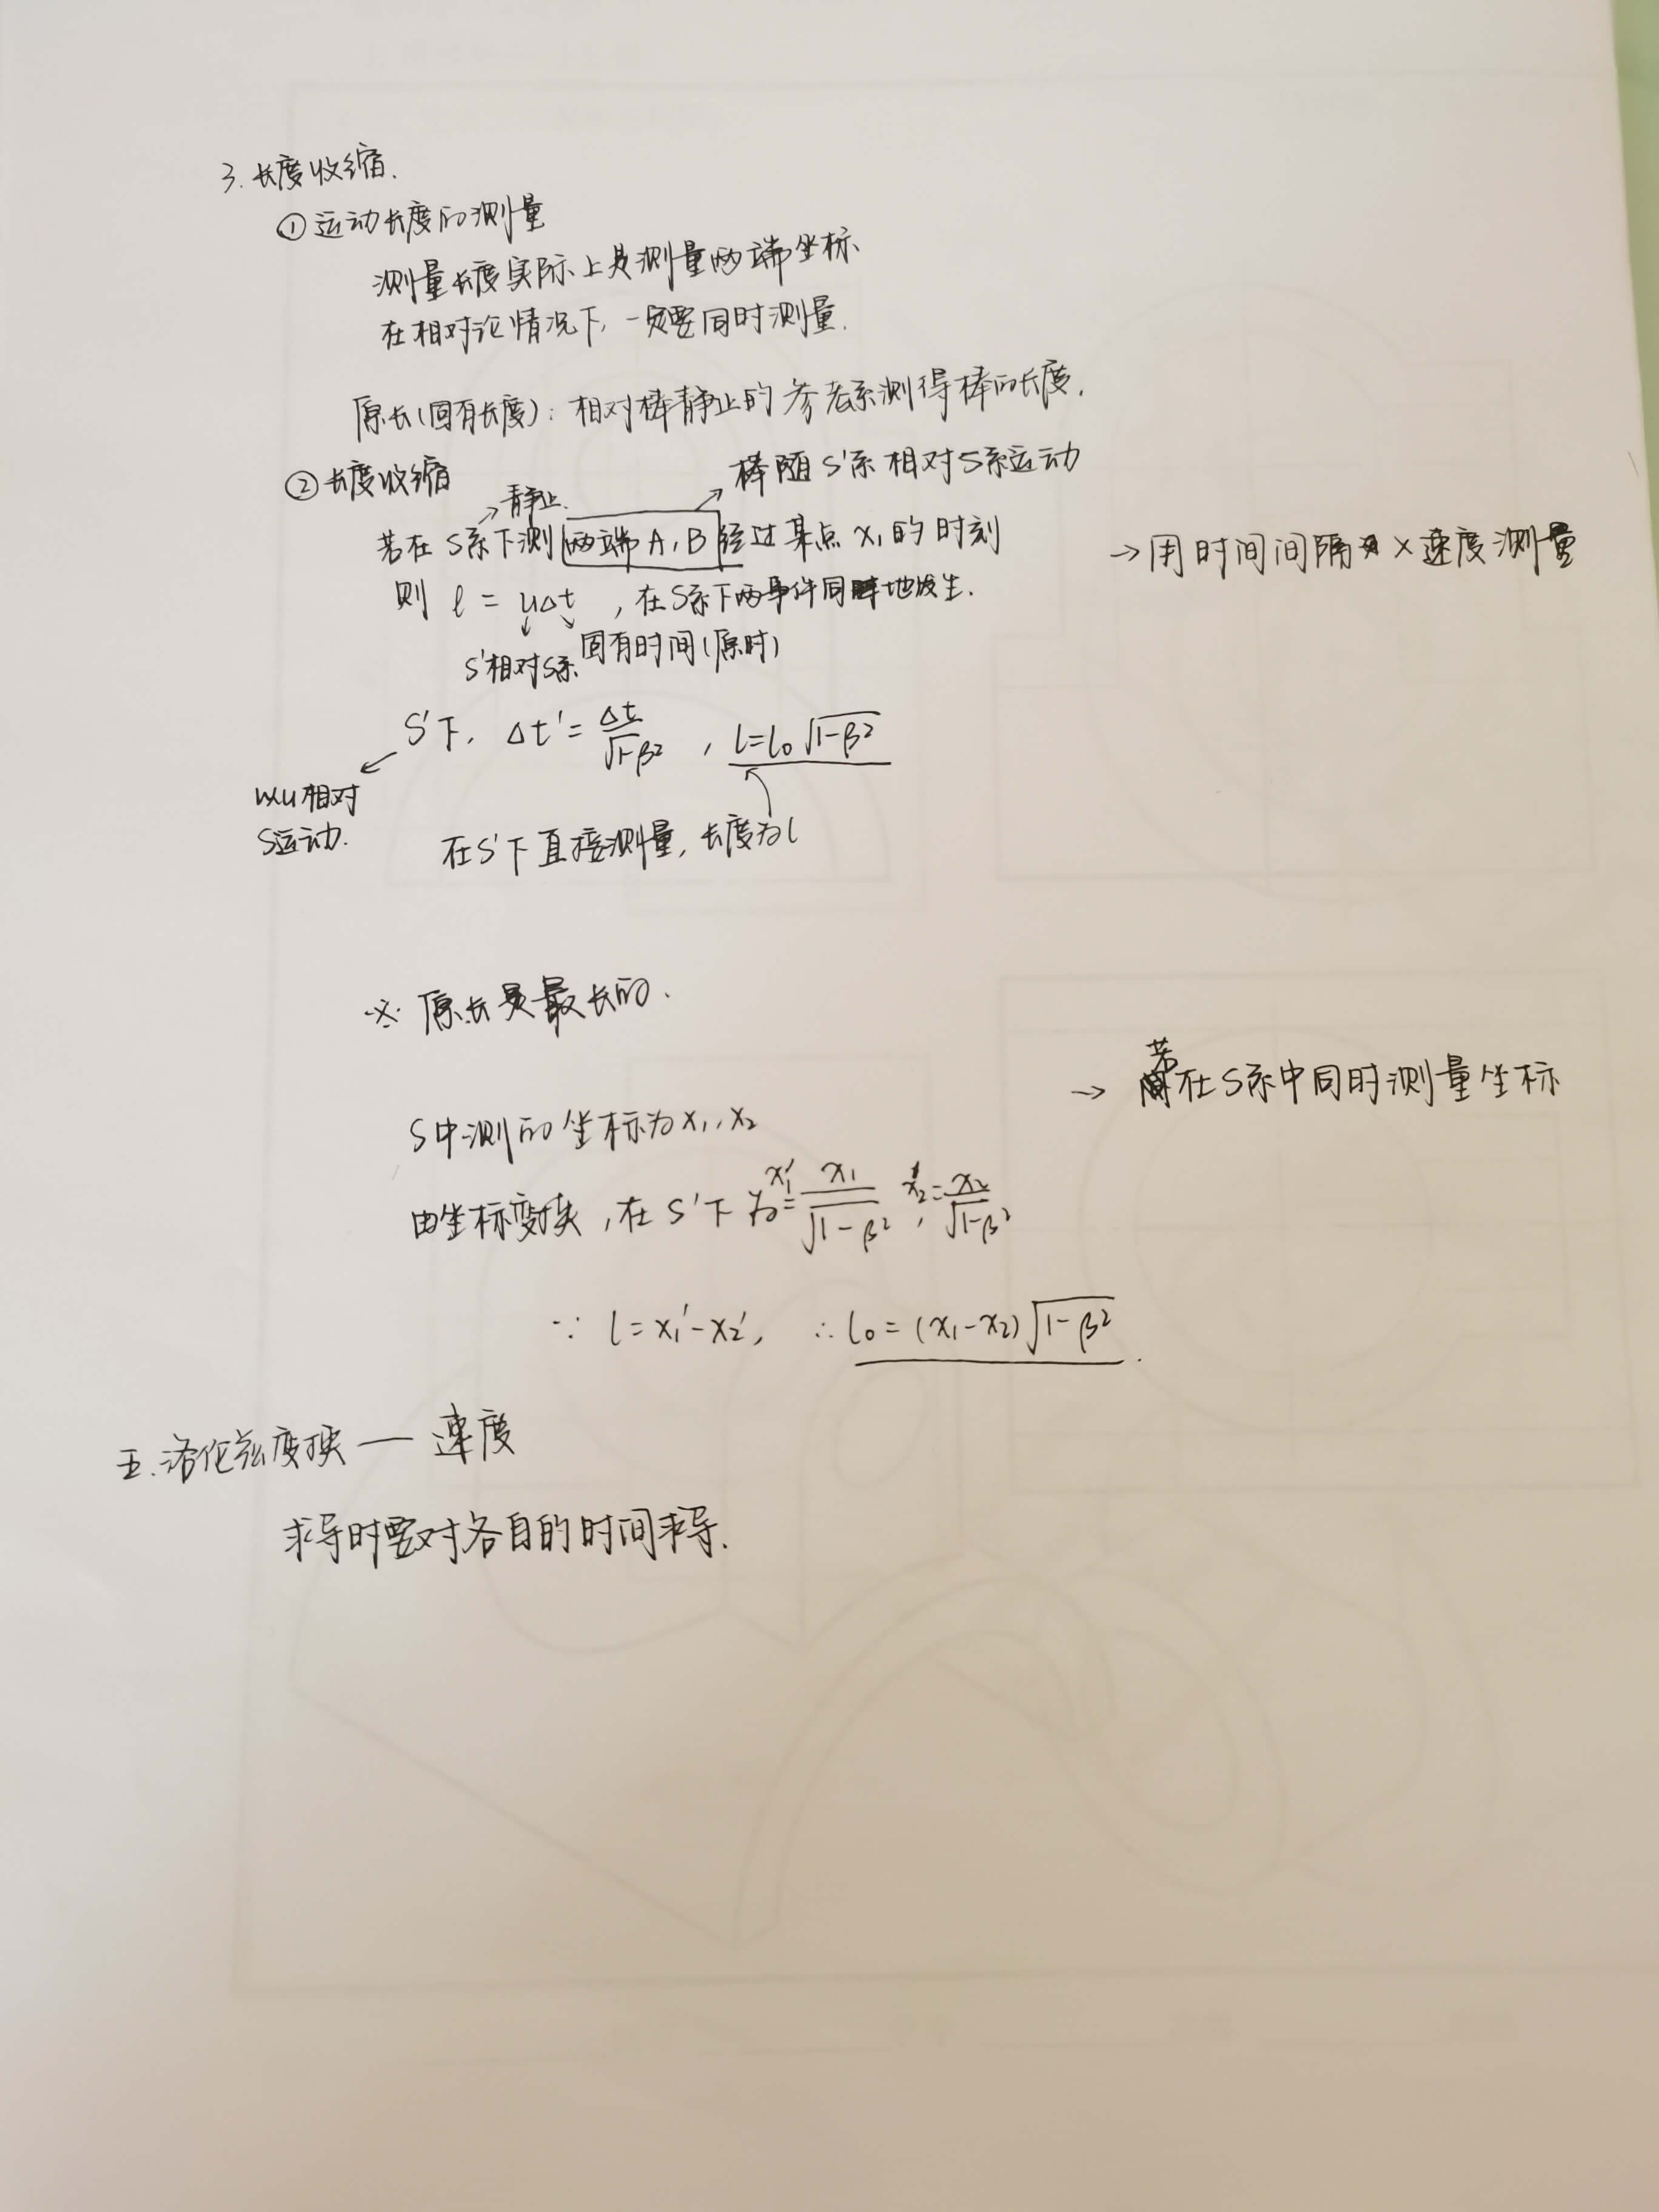 3. 长度收缩.
① 运动长度的测量
测量长度实际上是测量两端坐标
在相对论情况下, 一定要同时测量.
原长(固有长度): 相对棒静止的参考系测得棒的长度.
② 长度收缩
→静止.
棒随S'系相对S系运动
若在S系下测两端A,B经过某点x₁的时刻
→用时间间隔×速度测量
则 l = uΔt , 在S系下两事件同地发生.
S'相对S系 固有时间(原时)
S'下, Δt' = Δt/√1-β² , l=l₀√1-β²
以u相对
S运动.
在S'下直接测量, 长度为l
※ 原长是最长的.
→ 若在S系中同时测量坐标
S中测的坐标为x₁, x₂
由坐标变换, 在S'下为 x₁' = x₁/√1-β² , x₂' = x₂/√1-β²
∵ l = x₁'-x₂', ∴ l₀ = (x₁-x₂)√1-β² .
五.洛伦兹变换 — 速度
求导时要对各自的时间求导.